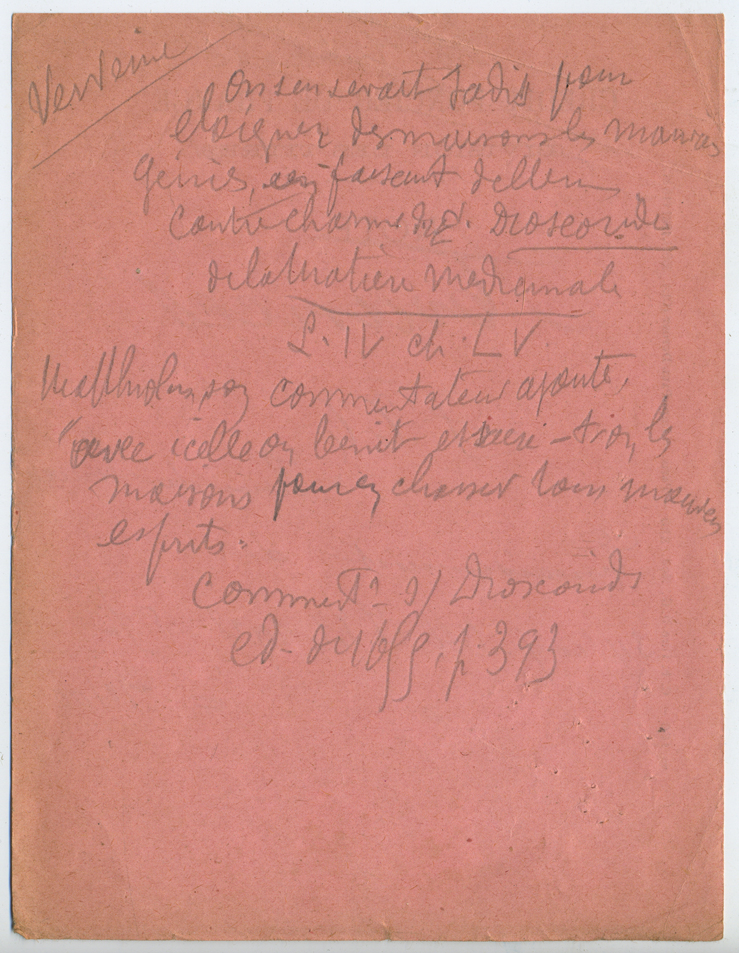 Verveine
On s'en servait jadis pour
eloigner des maisons les mauvais
Génies, en faisant d'elle un
contre charme Dioscoride
de la Matière Medicinale
L. IV ch. LV
Matthiole, son commentateur ajoute,
"avec icelle on benit et sacre-t-on les
maisons pour en chasser tous mauvais
esprits.
Comment. s/ Dioscoride
ed. de 1655, p. 393